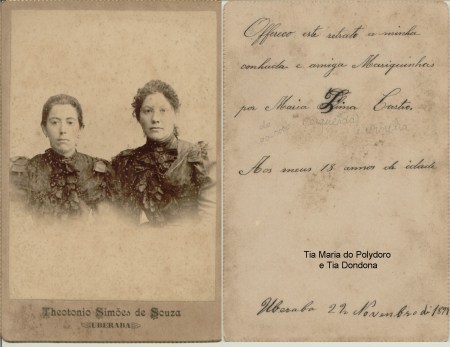 Theotonio Simões de Souza
UBERABA
Offereço este retrato a minha
cunhada e amiga Mariquinhas
por Maria Lima Castro.
Aos meus 18 annos de idade
Tia Maria do Polydoro
e Tia Dondona
Uberaba 22 Novembro de 1899